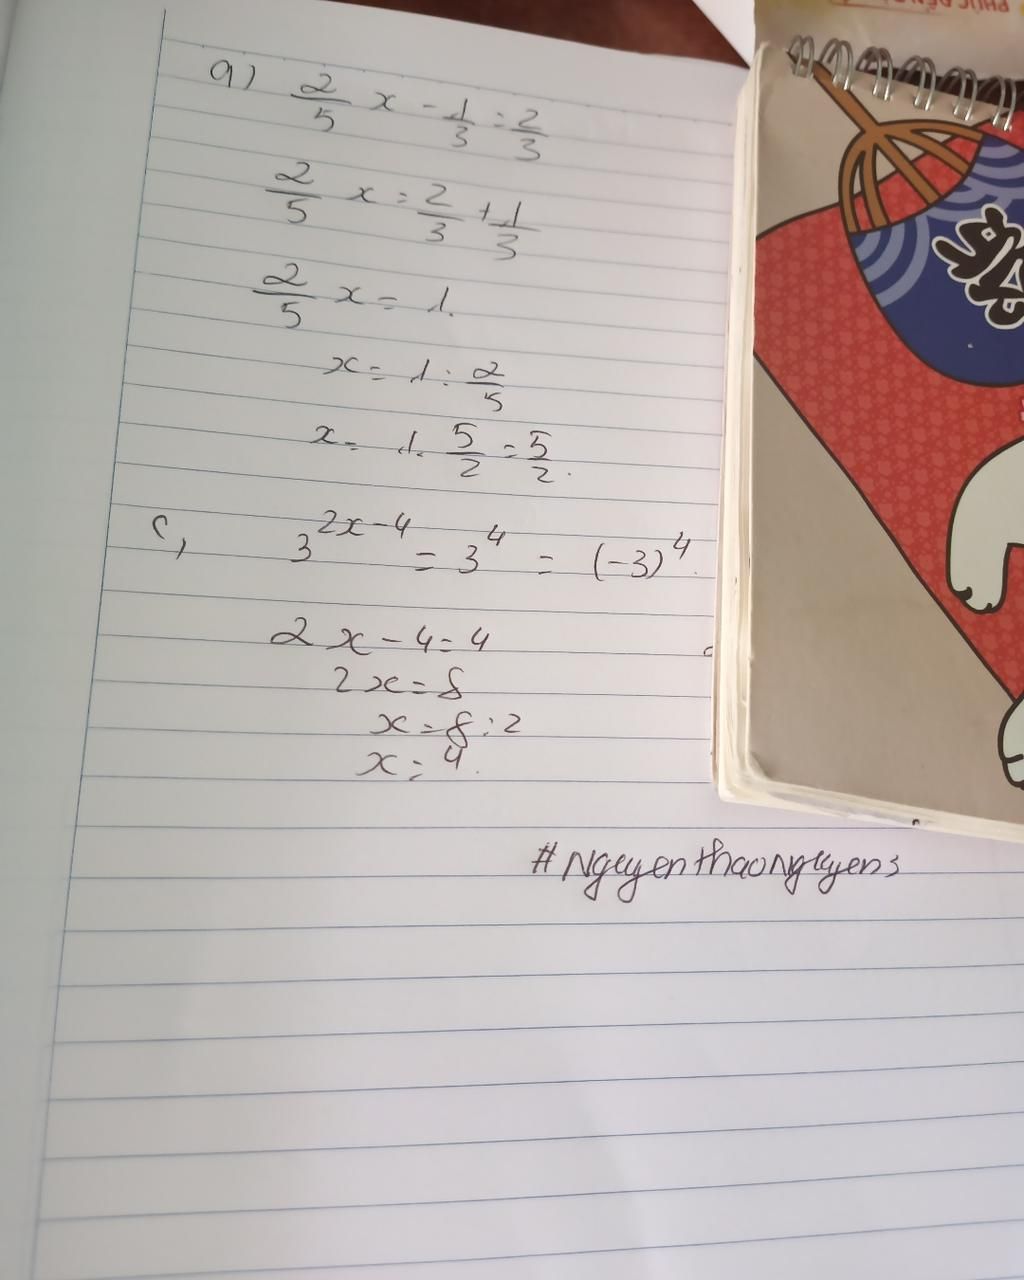 a) 2/5 x - 1/3 = 2/3
2/5 x = 2/3 + 1/3
2/5 x = 1.
x = 1 : 2/5
x = 1. 5/2 = 5/2.
c, 3^(2x-4) = 3^4 = (-3)^4.
2x - 4 = 4
2x = 8
x = 8 : 2
x = 4.
#Nguyenthaonguyens